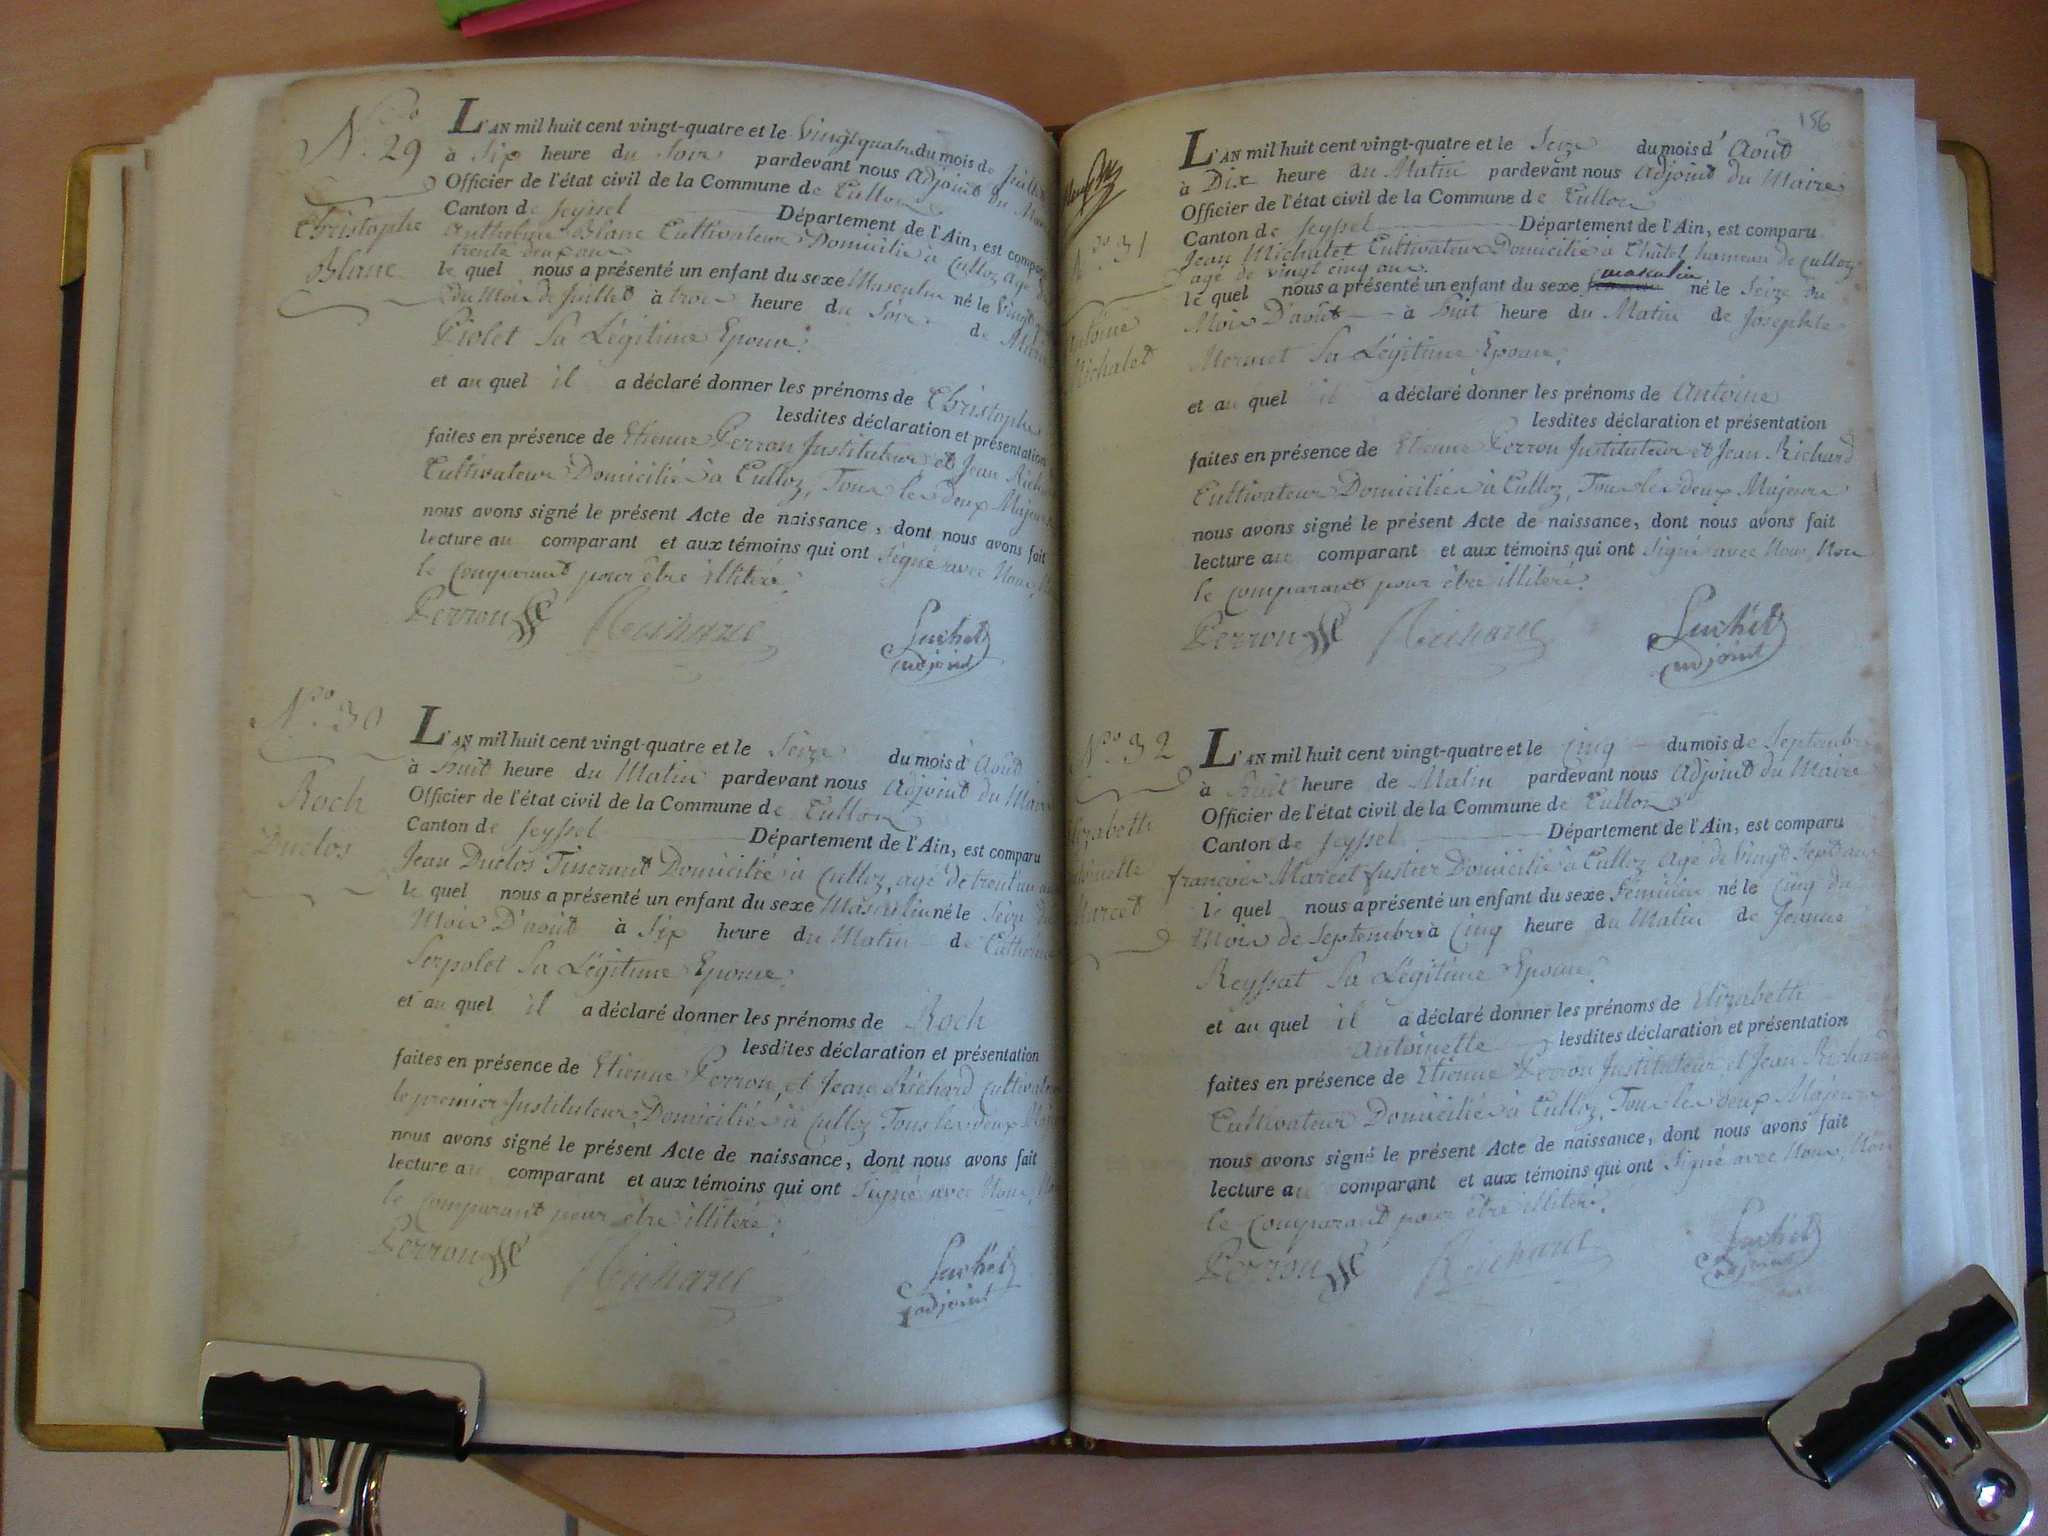 N.º 29
Christophe
Blanc
L'AN mil huit cent vingt-quatre et le Vingt quatre du mois de
à Six heure du Soir pardevant nous adjoint du
Officier de l'état civil de la Commune de Culloz
Canton de Seyssel Département de l'Ain, est
Anthelme Blanc Cultivateur Domicilié à Culloz agé de
trente deux ans
le quel nous a présenté un enfant du sexe Masculin né le
du Mois de Juillet à trois heure du Soir de
Piolet Sa Légitime Epouse.
et au quel il a déclaré donner les prénoms de Christophe
lesdites déclaration et présentation
faites en présence de Etienne Perron Instituteur et Jean
Cultivateur Domicilié à Culloz, Tous les deux Majeurs
nous avons signé le présent Acte de naissance, dont nous avons fait
lecture au comparant et aux témoins qui ont Signé avec Nous,
le comparant pour être illiteré.
Perron Richard Suchet
adjoint
N.º 30
Roch
Duclos
L'AN mil huit cent vingt-quatre et le Seize du mois d'Août
à huit heure du Matin pardevant nous adjoint du Maire
Officier de l'état civil de la Commune de Culloz
Canton de Seyssel Département de l'Ain, est comparu
Jean Duclos Domicilié à Culloz, agé de trent un
le quel nous a présenté un enfant du sexe Masculin né le Seize du
Mois D'août à Six heure du Matin de Catherine
Serpolet Sa Légitime Epouse.
et au quel il a déclaré donner les prénoms de Roch
lesdites déclaration et présentation
faites en présence de Etienne Perron, et Jean Richard cultivateur
le premier Instituteur, Domiciliés à Culloz Tous les deux
nous avons signé le présent Acte de naissance, dont nous avons fait
lecture au comparant et aux témoins qui ont Signé avec Nous,
le comparant pour être illiteré.
Perron Richard Suchet
adjoint
156
N.º 31
Antoine
Michalet
L'AN mil huit cent vingt-quatre et le Seize du mois d'Août
à Dix heure du Matin pardevant nous adjoint du Maire
Officier de l'état civil de la Commune de Culloz
Canton de Seyssel Département de l'Ain, est comparu
Jean Michalet Cultivateur Domicilié à Châtel hameau de Culloz
agé de vingt cinq ans.
le quel nous a présenté un enfant du sexe masculin né le Seize du
Mois D'août à huit heure du Matin de Josephte
Mermet Sa Légitime Epouse.
et au quel il a déclaré donner les prénoms de Antoine
lesdites déclaration et présentation
faites en présence de Etienne Perron Instituteur et Jean Richard
Cultivateur Domiciliés à Culloz, Tous les deux Majeurs
nous avons signé le présent Acte de naissance, dont nous avons fait
lecture au comparant et aux témoins qui ont Signé avec Nous, Non
le comparant pour être illiteré.
Perron Richard Suchet
adjoint
N.º 32
Elizabeth
Antoinette
Marcet
L'AN mil huit cent vingt-quatre et le Cinq du mois de Septembre
à huit heure de Matin pardevant nous adjoint du Maire
Officier de l'état civil de la Commune de Culloz
Canton de Seyssel Département de l'Ain, est comparu
françois Marcet Domicilié à Culloz agé de Vingt Sept ans
le quel nous a présenté un enfant du sexe Féminin né le Cinq du
Mois de Septembre à Cinq heure du Matin de Jeanne
Reyssat Sa Légitime Epouse.
et au quel il a déclaré donner les prénoms de Elizabeth
Antoinette lesdites déclaration et présentation
faites en présence de Etienne Perron Instituteur et Jean Richard
Cultivateur Domiciliés à Culloz, Tous les deux Majeurs
nous avons signé le présent Acte de naissance, dont nous avons fait
lecture au comparant et aux témoins qui ont Signé avec Nous, Non
le comparant pour être illiteré.
Perron Richard Suchet
adjoint